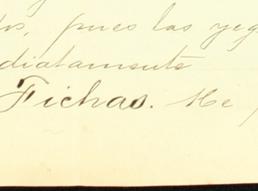 pues las yeg
diatamente
Fichas. He